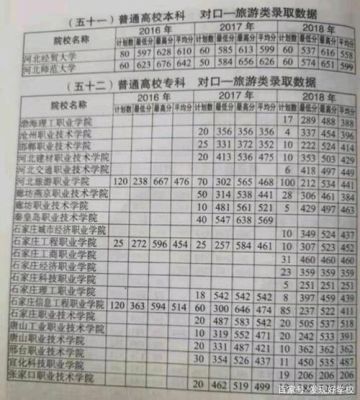 (五十一)普通高校本科 对口—旅游类录取数据
院校名称 2016年 2017年 2018年
计划数 最低分 最高分 平均分 计划数 最低分 最高分 平均分 计划数 最低分 最高分 平均分
河北经贸大学 80 597 628 610 60 585 613 599 60 537 616 558
河北师范大学 60 623 676 642 50 584 656 626 60 574 651 599
(五十二)普通高校专科 对口—旅游类录取数据
院校名称 2016年 2017年 2018年
计划数 最低分 最高分 平均分 计划数 最低分 最高分 平均分 计划数 最低分 最高分 平均分
渤海理工职业学院 17 289 488 388
沧州职业技术学院 20 356 356 356
邯郸职业技术学院 25 331 372 352 10 222 524 414
河北建材职业技术学院 20 413 536 475 10 353 503 429
河北交通职业技术学院 6 418 497 449
河北旅游职业学院 120 238 667 476 70 302 565 468 100 212 534 441
廊坊燕京职业技术学院 50 314 538 441 28 306 461 384
廊坊职业技术学院 10 481 561 521 5 429 497 463
秦皇岛职业技术学院 40 547 638 569
石家庄城市经济职业学院 10 349 524 437
石家庄工程职业学院 25 272 596 454 25 257 584 461 10 307 523 452
石家庄工商职业学院 31 460 460 460
石家庄经济职业学院 23 359 359 359
石家庄科技职业学院 5 251 251 251
石家庄理工职业学院 18 542 542 542 8 397 459 439
石家庄信息工程职业学院 120 363 594 514 60 300 646 474 85 237 522 411
石家庄职业技术学院 20 487 583 542 20 505 537 518
唐山工业职业技术学院 10 319 552 471 20 242 533 441
唐山职业技术学院 20 331 487 421 10 362 362 362
邢台职业技术学院 30 354 526 437 11 450 535 487
宣化科技职业学院
张家口职业技术学院 20 462 519 499
百家号/发现好学校